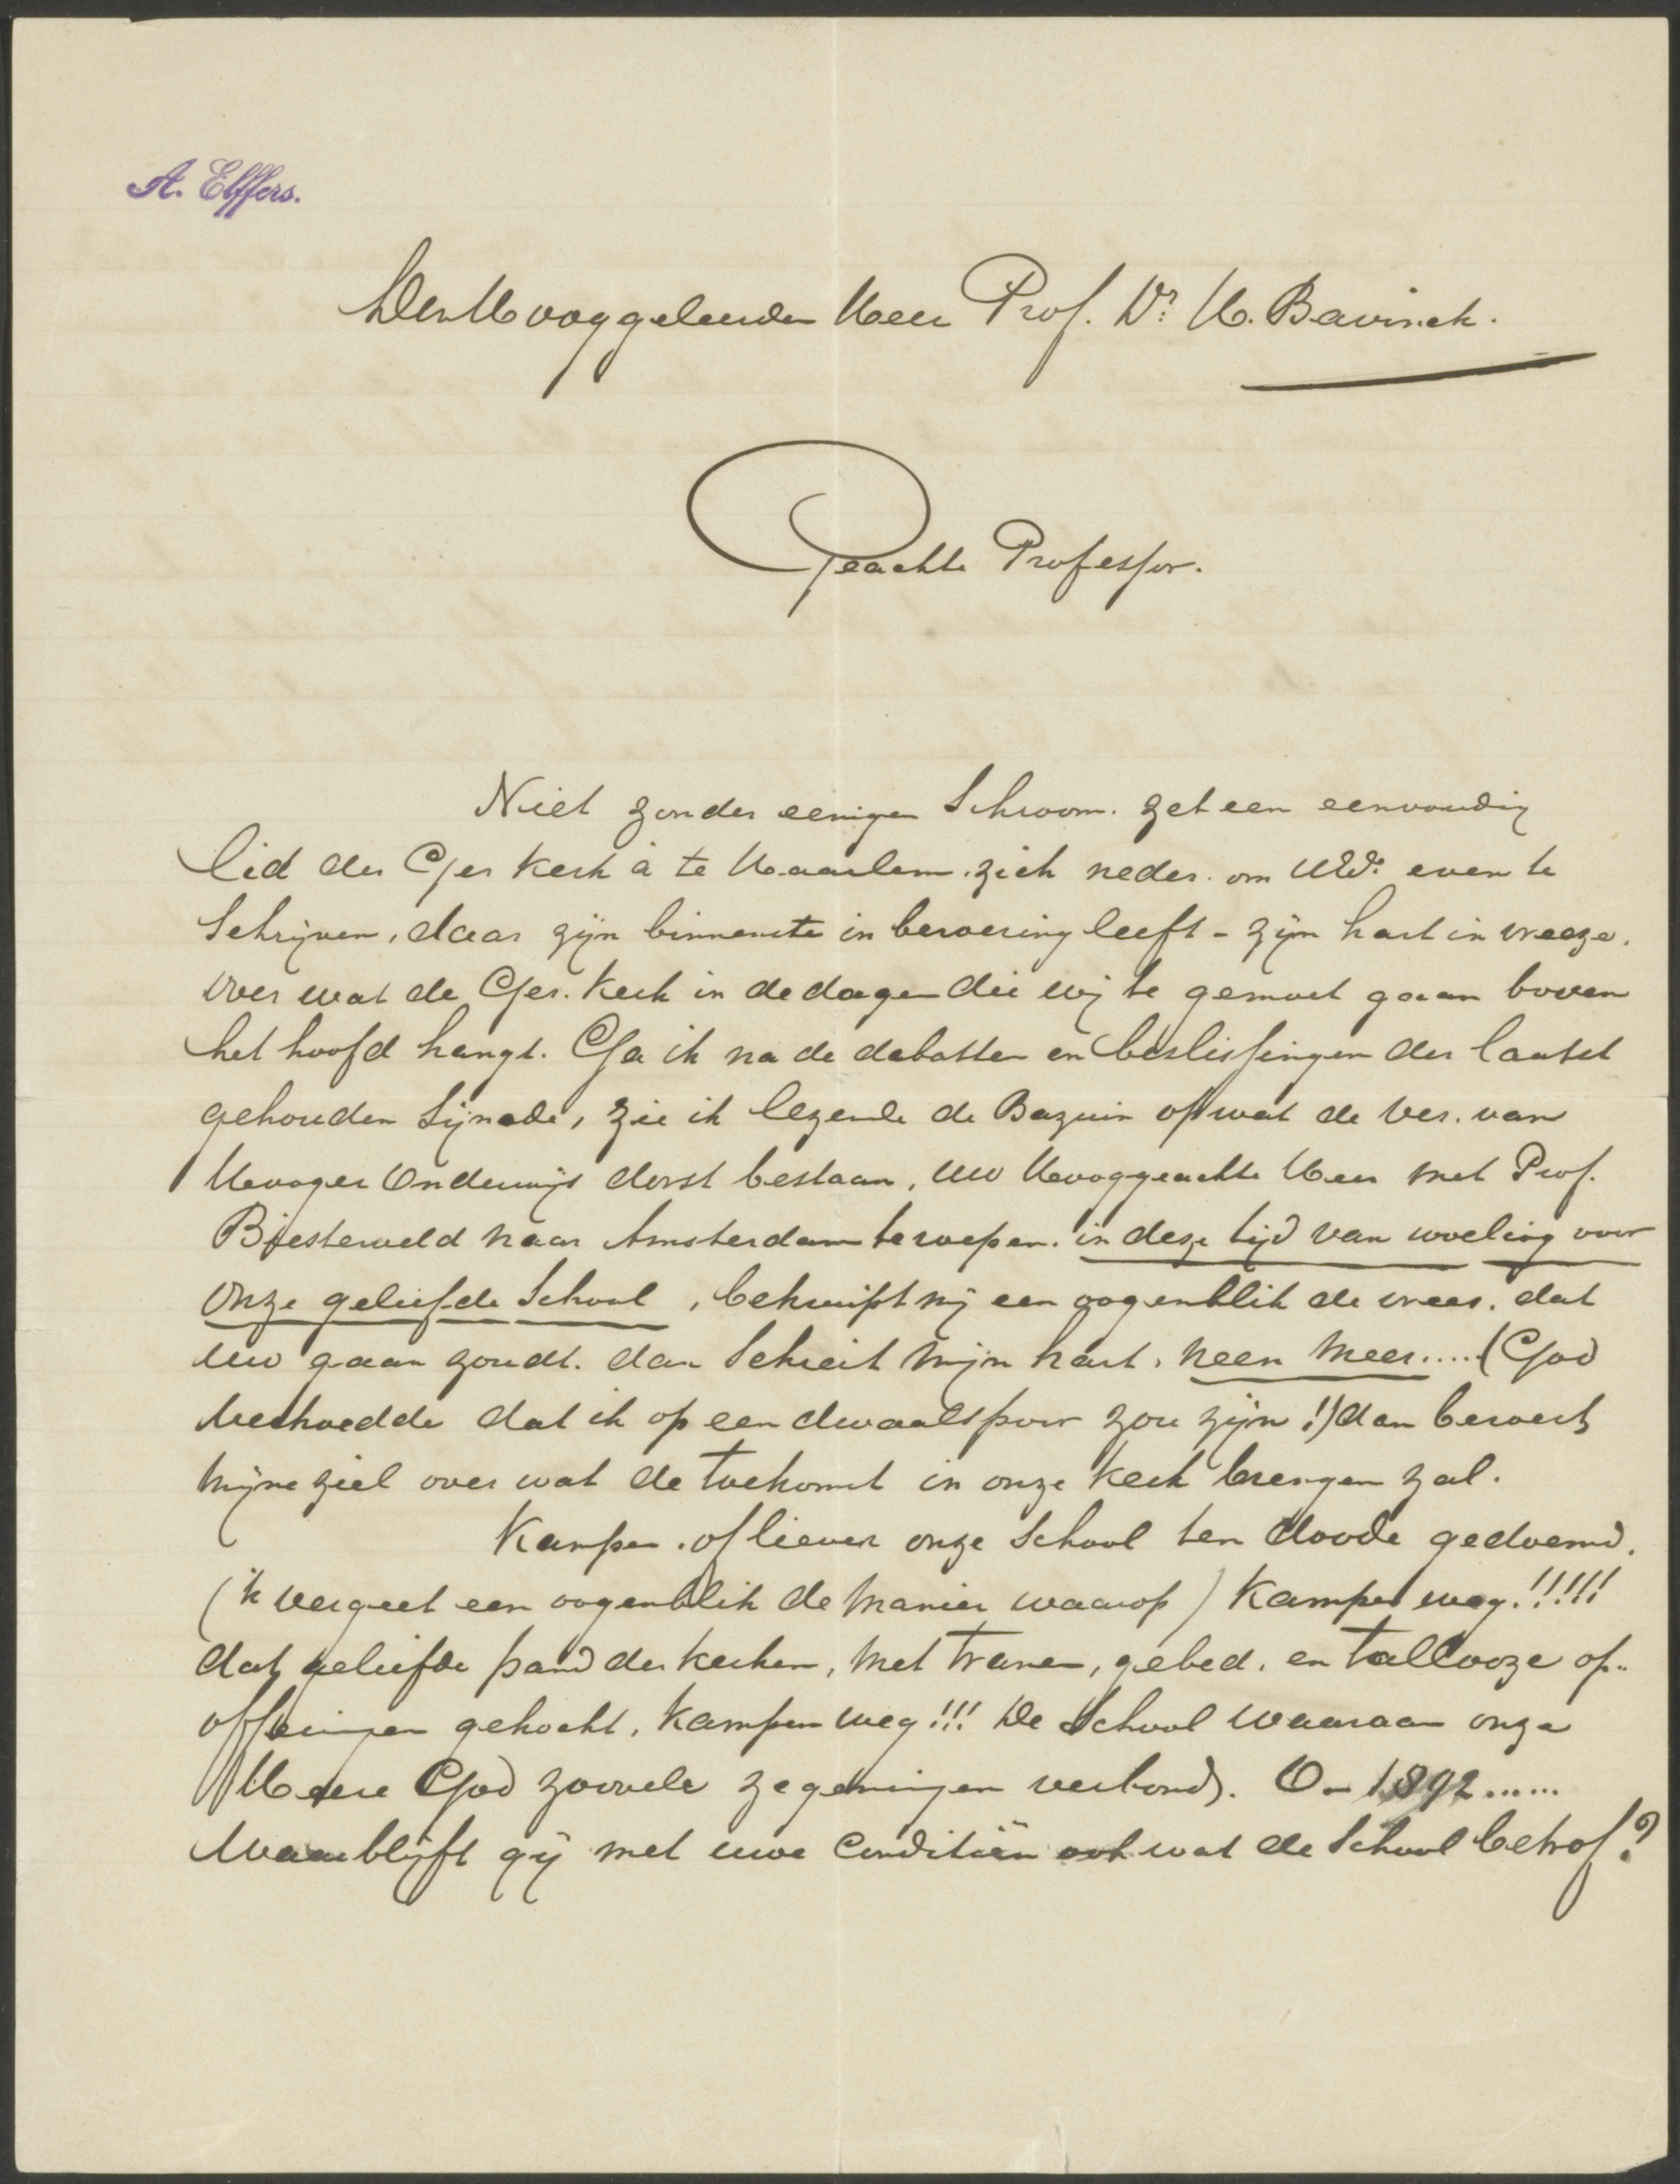 A. Elffers.
Den Hooggeleerden Heer Prof. Dr. H. Bavinck.
Geachte Professor.
Niet zonder eenigen Schroom. zet een eenvoudig
lid der Ger Kerk à te Haarlem. zich neder. om UEd: even te
Schrijven, daar zijn binnenste in beroering leeft - zijn hart in vreeze.
over wat de Ger. Kerk in de dagen die wij te gemoet gaan boven
het hoofd hangt. Ga ik na de debatten en beslissingen der laatst
gehouden Sijnode, zie ik lezende de Bazuin op wat de Ver. van
Hooger Onderwijs dorst bestaan, uw Hooggeachte Heer met Prof.
Biesterveld naar Amsterdam te roepen. in deze tijd van woeling voor
onze geliefde School, bekruipt mij een oogenblik de vrees. dat
uw gaan zoudt. dan Schreit mijn hart, neen meer.....(God
verhoedde dat ik op een dwaalspoor zou zijn!!) dan beroert
mijne ziel over wat de toekomst in onze Kerk brengen zal.
Kampen. of liever onze School ten doode gedoemd.
(ik vergeet een oogenblik de manier waarop) Kampen weg.!!!!!
dat geliefde pand der kerken, met tranen, gebed. en tallooze op-
offeringen gekocht, Kampen weg!!! De School waaraan onze
Heere God zoovele zegeningen verbond. O- 1892......
Waar blijft gij met uwe Conditiën ook wat de School betrof?